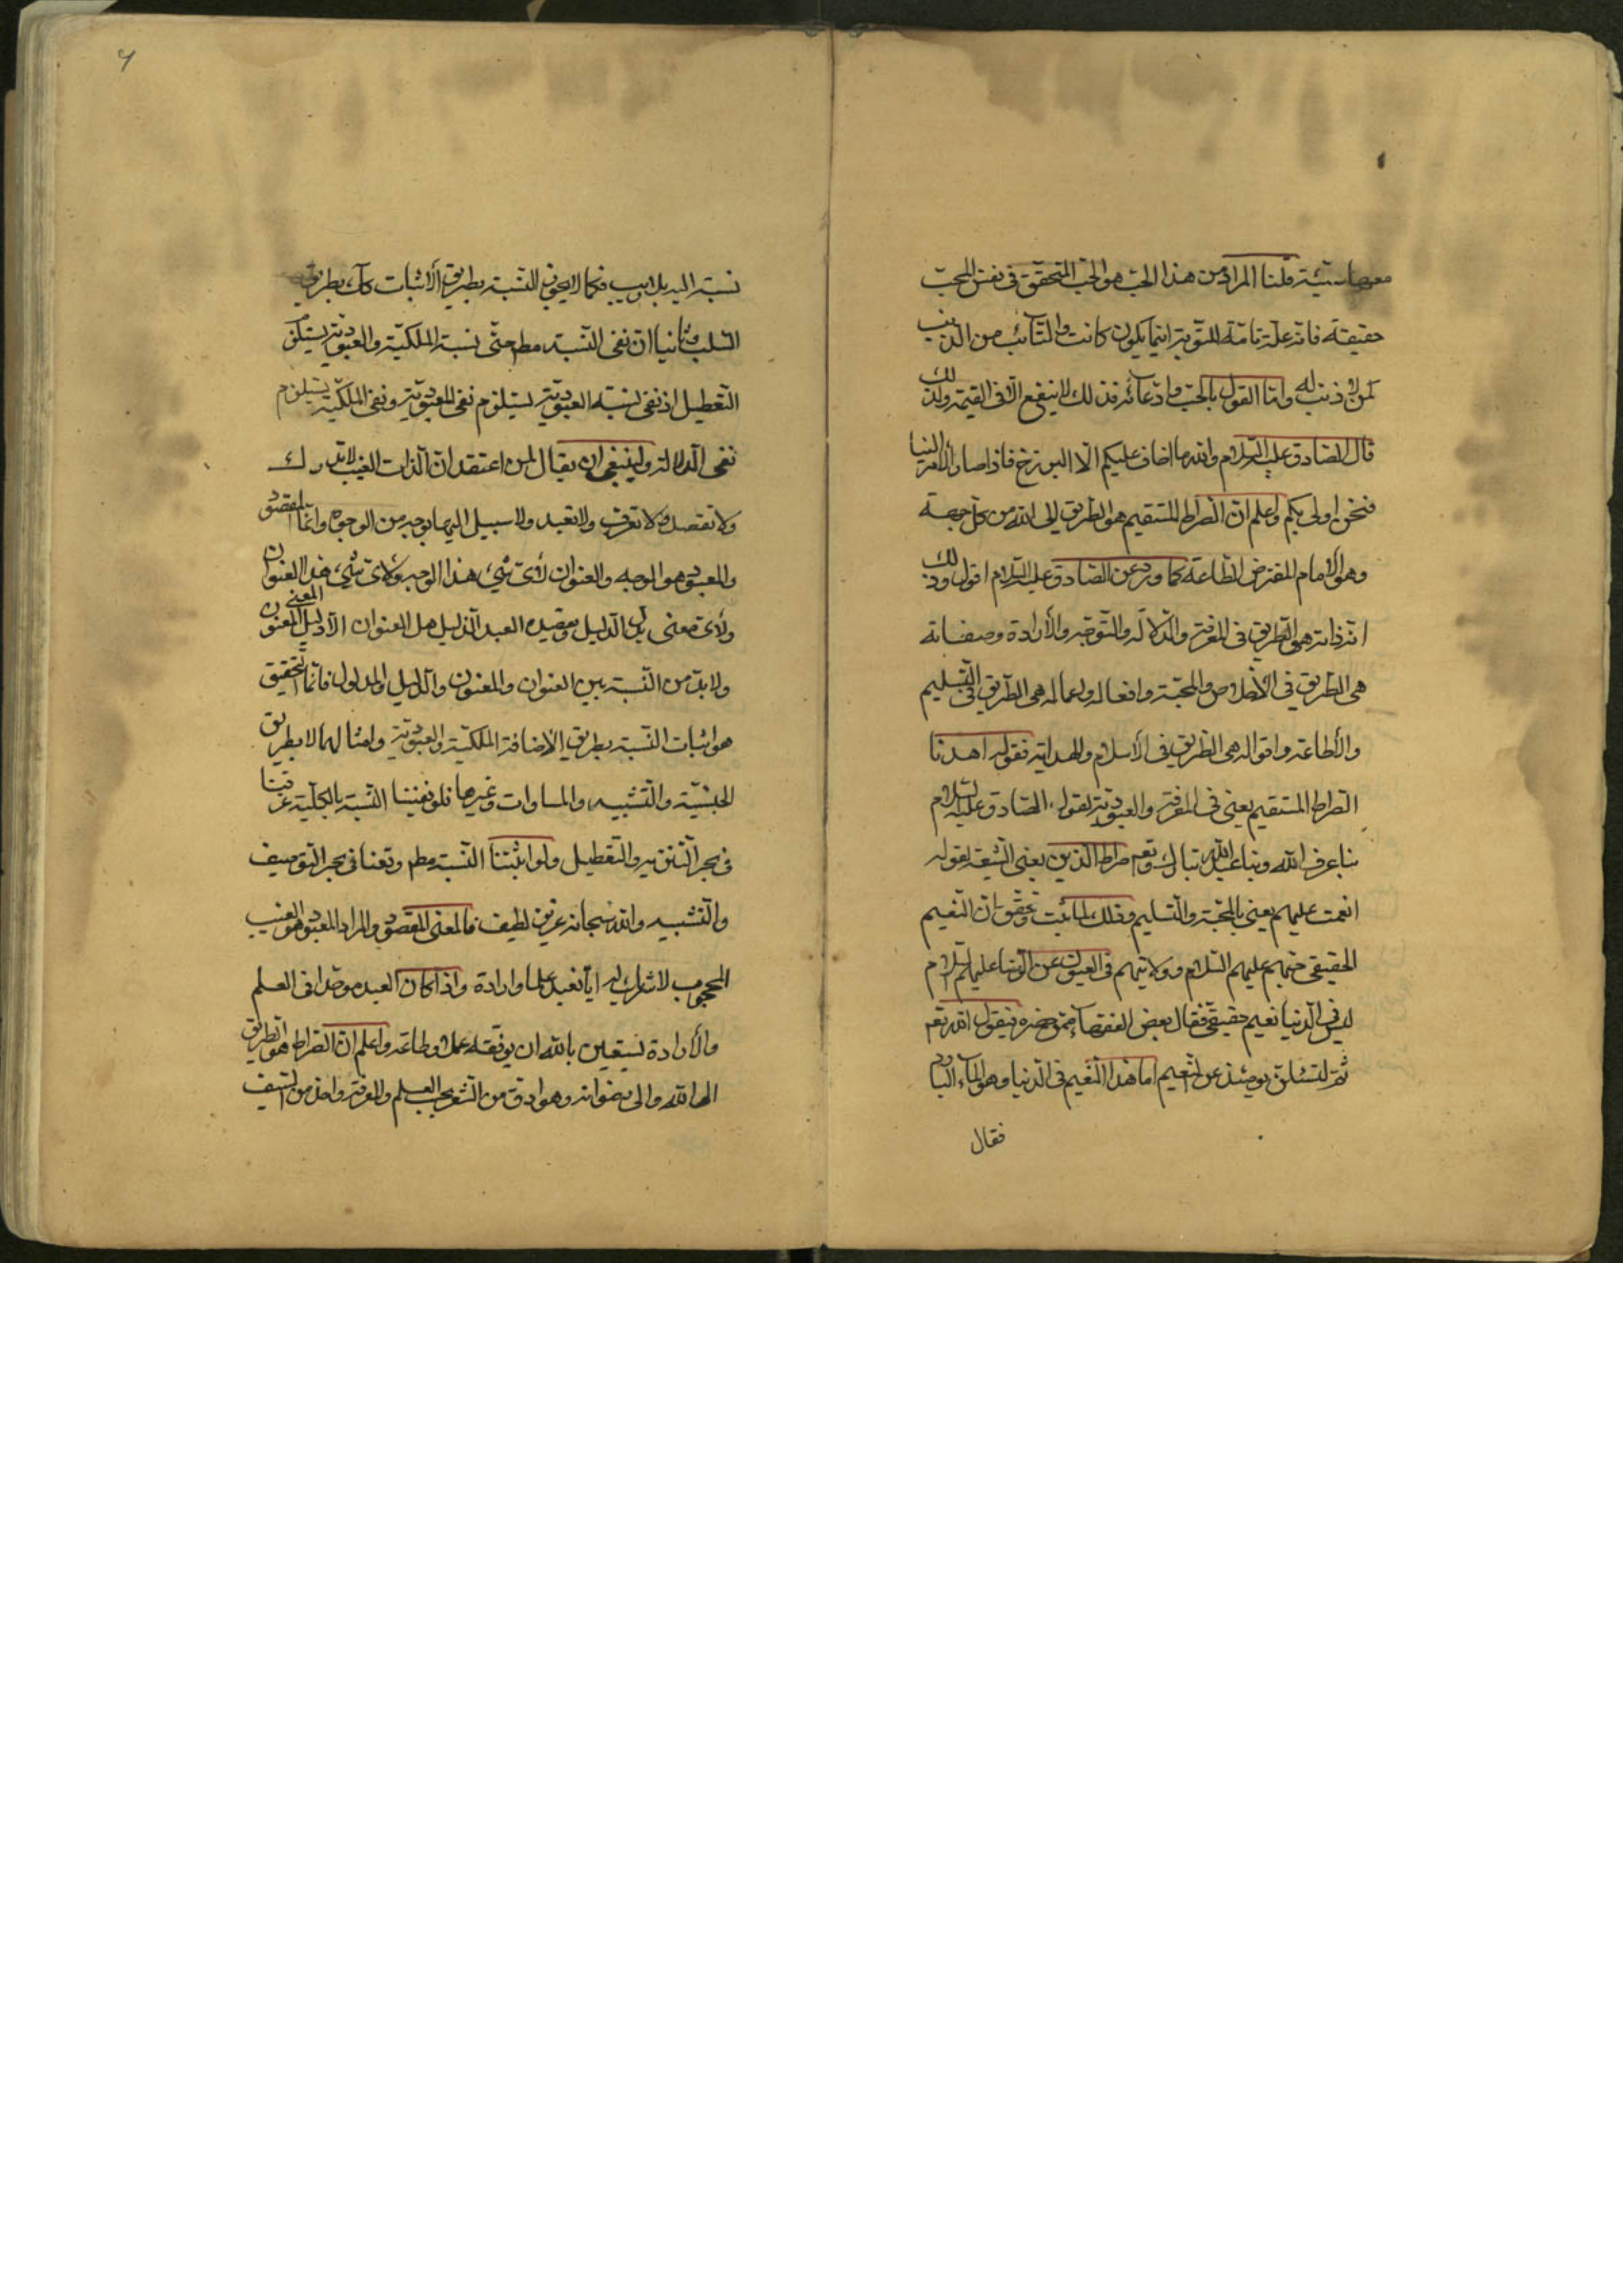 معها سيئة قلنا المراد من هذا الحب هو الحب المتحقق في نفس المحب
حقيقة فانه علة تامة للتوبة ايتما يكون كانت والتائب من الذنب
كمن لا ذنب له واما القول بالحب وادعائه فذلك لا ينفع الا في القيمة ولذلك
قال الصادق عليه السلام والله ما اخاف عليكم الا البرزخ فاذا صار الامر الينا
فنحن اولى بكم واعلم ان الصراط المستقيم هو الطريق الى الله من كل جهة
وهو الامام المفترض الطاعة كما ورد عن الصادق عليه السلام اقول وذلك
ان ذاته هي الطريق في المعرفة والدلالة والتوجه والأرادة وصفاته
هي الطريق في الأخلاص والمحبة وافعاله واعماله هي الطريق في التسليم
والأطاعة واقواله هي الطريق في الأسلام والهداية فقوله اهدنا
الصراط المستقيم يعني في المعرفة والعبودية لقول الصادق عليه السلام
بنا عرف الله وبنا عبد الله تبارك وتعه صراط الذين يعني الشيعة لقوله
انعمت عليهم يعني بالمحبة والتسليم وذلك لما ثبت وتحقق ان النعيم
الحقيقي حبهم عليهم السلام وولايتهم في العيون عن الرضا عليه السلام
ليس في الدنيا نعيم حقيقي فقال بعض الفقهاء ممن حضره فيقول الله تعه
ثم لتسئلن يومئذ عن النعيم اما هذا النعيم في الدنيا وهو الماء البارد
فقال
نسبة اليه بلا ريب فكما لا يجوز النسبة بطريق الأثبات كك بطريق
السلب وثانيا ان نفي النسبة مطم حتى نسبة الملكية والعبودية يستلزم
التعطيل اذ نفي نسبة العبودية يستلزم نفي المعبودية ونفي الملكية يستلزم
نفي الدلالة ولا ينبغي ان يقال لمن اعتقد ان الذات الغيب لا تدرك
ولا تقصد ولا تعرف ولا تعبد ولا سبيل اليها بوجه من الوجوه وانما المقصود
والمعبود هو الوجه والعنوان لأي شيء هذا الوجه ولأي شيء هذا العنوان
ولأي معنى يدل الدليل ويقصده العبد الذليل هل العنوان الا دليل المعنون
المعنى
ولا بد من النسبة بين العنوان والمعنون والدليل والمدلول فانما التحقيق
هو اثبات النسبة بطريق الاضافة الملكية والعبودية وامثالهما لا بطريق
الجنسية والتشبيه والمساوات وغيرها فلو نفينا النسبة بالكلية غرقنا
في بحر التنزيه والتعطيل ولو اثبتنا النسبة مطم وقعنا في بحر التوصيف
والتشبيه والله سبحانه عزيز لطيف فالمعنى المقصود والمراد المعبود هو الغيب
المحجوب لا شريك له اياه نعبد علما وارادة واذا كان العبد موحدا في العلم
والأرادة نستعين بالله ان يوفقه عملا وطاعة واعلم ان الصراط هو الطريق
الى الله والى رضوانه وهو ادق من الشعر بحسب العلم والمعرفة واحد من السيف